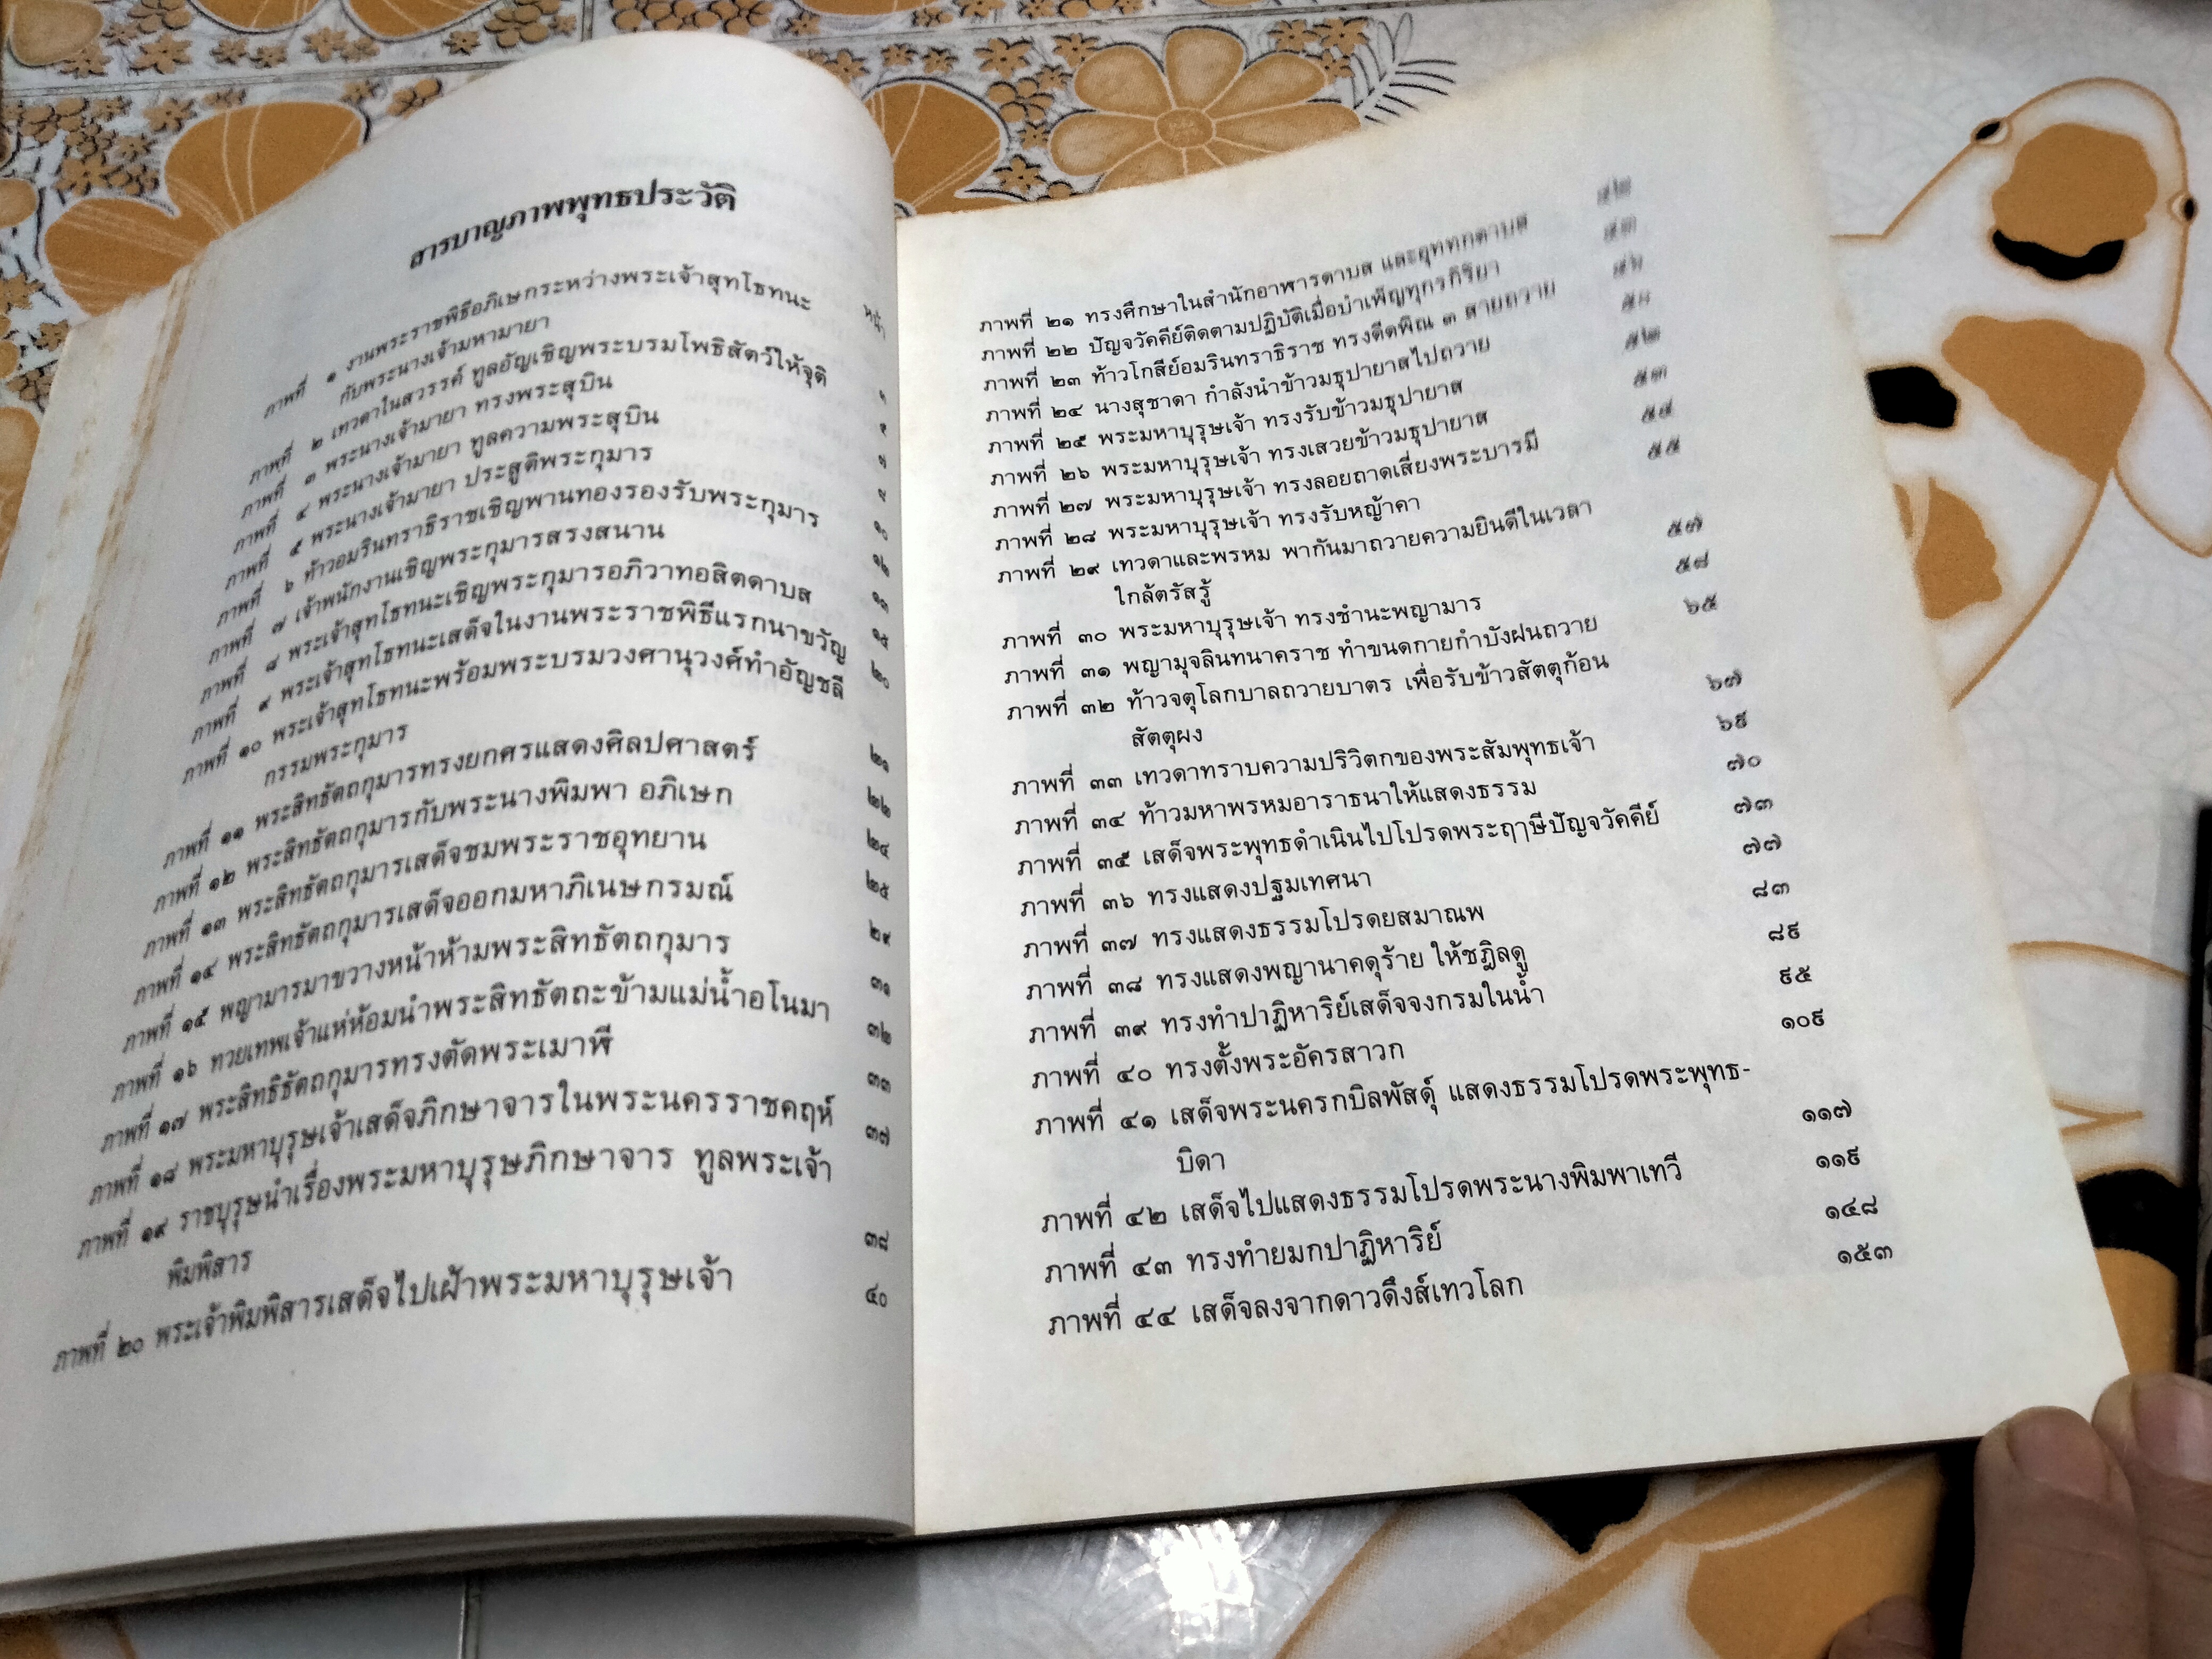 สารบาญภาพพุทธประวัติ
หน้า
ภาพที่ ๑ งานพระราชพิธีอภิเษกระหว่างพระเจ้าสุทโธทนะ
กับพระนางเจ้ามหามายา ๑
ภาพที่ ๒ เทวดาในสวรรค์ ทูลอัญเชิญพระบรมโพธิสัตว์ให้จุติ
ภาพที่ ๓ พระนางเจ้ามายา ทรงพระสุบิน ๗
ภาพที่ ๔ พระนางเจ้ามายา ทูลความพระสุบิน
ภาพที่ ๕ พระนางเจ้ามายา ประสูติพระกุมาร ๑๐
ภาพที่ ๖ ท้าวอมรินทราธิราชเชิญพานทองรองรับพระกุมาร ๑๒
ภาพที่ ๗ เจ้าพนักงานเชิญพระกุมารสรงสนาน ๑๓
ภาพที่ ๘ พระเจ้าสุทโธทนะเชิญพระกุมารอภิวาทอสิตดาบส ๑๕
ภาพที่ ๙ พระเจ้าสุทโธทนะเสด็จในงานพระราชพิธีแรกนาขวัญ ๒๐
ภาพที่ ๑๐ พระเจ้าสุทโธทนะพร้อมพระบรมวงศานุวงศ์ทำอัญชลี
กรรมพระกุมาร ๒๑
ภาพที่ ๑๑ พระสิทธัตถกุมารทรงยกศรแสดงศิลปศาสตร์ ๒๒
ภาพที่ ๑๒ พระสิทธัตถกุมารกับพระนางพิมพา อภิเษก ๒๔
ภาพที่ ๑๓ พระสิทธัตถกุมารเสด็จชมพระราชอุทยาน ๒๕
ภาพที่ ๑๔ พระสิทธัตถกุมารเสด็จออกมหาภิเนษกรมณ์ ๒๙
ภาพที่ ๑๕ พญามารมาขวางหน้าห้ามพระสิทธัตถกุมาร ๓๑
ภาพที่ ๑๖ ทวยเทพเจ้าแห่ห้อมนำพระสิทธัตถะข้ามแม่น้ำอโนมา ๓๒
ภาพที่ ๑๗ พระสิทธิธัตถกุมารทรงตัดพระเมาฬี ๓๓
ภาพที่ ๑๘ พระมหาบุรุษเจ้าเสด็จภิกษาจารในพระนครราชคฤห์ ๓๗
ภาพที่ ๑๙ ราชบุรุษนำเรื่องพระมหาบุรุษภิกษาจาร ทูลพระเจ้า
พิมพิสาร ๓๘
ภาพที่ ๒๐ พระเจ้าพิมพิสารเสด็จไปเฝ้าพระมหาบุรุษเจ้า ๔๐
ภาพที่ ๒๑ ทรงศึกษาในสำนักอาฬารดาบส และอุททกดาบส
ภาพที่ ๒๒ ปัญจวัคคีย์ติดตามปฏิบัติเมื่อบำเพ็ญทุกรกิริยา
ภาพที่ ๒๓ ท้าวโกสีย์อมรินทราธิราช ทรงดีดพิณ ๓ สายถวาย
ภาพที่ ๒๔ นางสุชาดา กำลังนำข้าวมธุปายาสไปถวาย
ภาพที่ ๒๕ พระมหาบุรุษเจ้า ทรงรับข้าวมธุปายาส ๕๒
ภาพที่ ๒๖ พระมหาบุรุษเจ้า ทรงเสวยข้าวมธุปายาส ๕๓
ภาพที่ ๒๗ พระมหาบุรุษเจ้า ทรงลอยถาดเสี่ยงพระบารมี ๕๔
ภาพที่ ๒๘ พระมหาบุรุษเจ้า ทรงรับหญ้าคา ๕๕
ภาพที่ ๒๙ เทวดาและพรหม พากันมาถวายความยินดีในเวลา
ใกล้ตรัสรู้ ๕๗
ภาพที่ ๓๐ พระมหาบุรุษเจ้า ทรงชำนะพญามาร ๕๘
ภาพที่ ๓๑ พญามุจลินทนาคราช ทำขนดกายกำบังฝนถวาย ๖๕
ภาพที่ ๓๒ ท้าวจตุโลกบาลถวายบาตร เพื่อรับข้าวสัตตุก้อน
สัตตุผง ๖๗
ภาพที่ ๓๓ เทวดาทราบความปริวิตกของพระสัมพุทธเจ้า ๖๙
ภาพที่ ๓๔ ท้าวมหาพรหมอาราธนาให้แสดงธรรม ๗๐
ภาพที่ ๓๕ เสด็จพระพุทธดำเนินไปโปรดพระฤๅษีปัญจวัคคีย์ ๗๓
ภาพที่ ๓๖ ทรงแสดงปฐมเทศนา ๗๗
ภาพที่ ๓๗ ทรงแสดงธรรมโปรดยสมาณพ ๘๓
ภาพที่ ๓๘ ทรงแสดงพญานาคดุร้าย ให้ชฎิลดู ๘๙
ภาพที่ ๓๙ ทรงทำปาฏิหาริย์เสด็จจงกรมในน้ำ ๙๕
ภาพที่ ๔๐ ทรงตั้งพระอัครสาวก ๑๐๙
ภาพที่ ๔๑ เสด็จพระนครกบิลพัสดุ์ แสดงธรรมโปรดพระพุทธ-
บิดา ๑๑๗
ภาพที่ ๔๒ เสด็จไปแสดงธรรมโปรดพระนางพิมพาเทวี ๑๑๙
ภาพที่ ๔๓ ทรงทำยมกปาฏิหาริย์ ๑๔๘
ภาพที่ ๔๔ เสด็จลงจากดาวดึงส์เทวโลก ๑๕๓